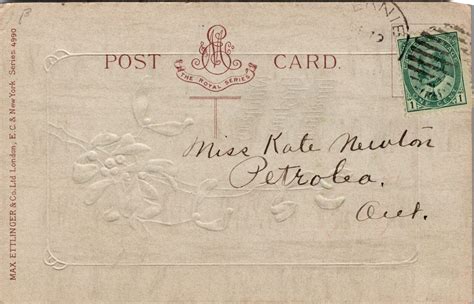 POST CARD.
THE ROYAL SERIES
MAX ETTLINGER & Co. Ltd London, E.C. & New York Series 4990
1 1
Miss Kate Newton
Petrolea.
Ont.